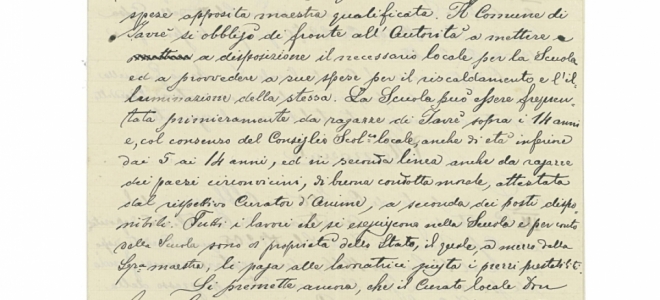 spese apposita maestra qualificata. Il Comune di
Javrè si obbligò di fronte all'Autorità a mettere
a disposizione il necessario locale per la Scuola
ed a provvedere a sue spese per il riscaldamento e l'il-
luminazione della stessa. La Scuola può essere frequen-
tata primieramente da ragazze di Javrè sopra i 14 anni
e, col consenso del Consiglio Scol.co locale, anche di età inferiore
dai 5 ai 14 anni, ed in seconda linea anche da ragazze
dei paesi circonvicini, di buona condotta morale, attestata
dal rispettivo Curator d'Anime, a seconda dei posti dispo-
nibili. Tutti i lavori che si eseguiscono nella Scuola e per conto
della Scuola sono di proprietà dello Stato, il quale, a mezzo della
Sig.ra maestra, li paga alle lavoratrici giusta i prezzi prestabiliti.
Si premette ancora, che il Curato locale Don